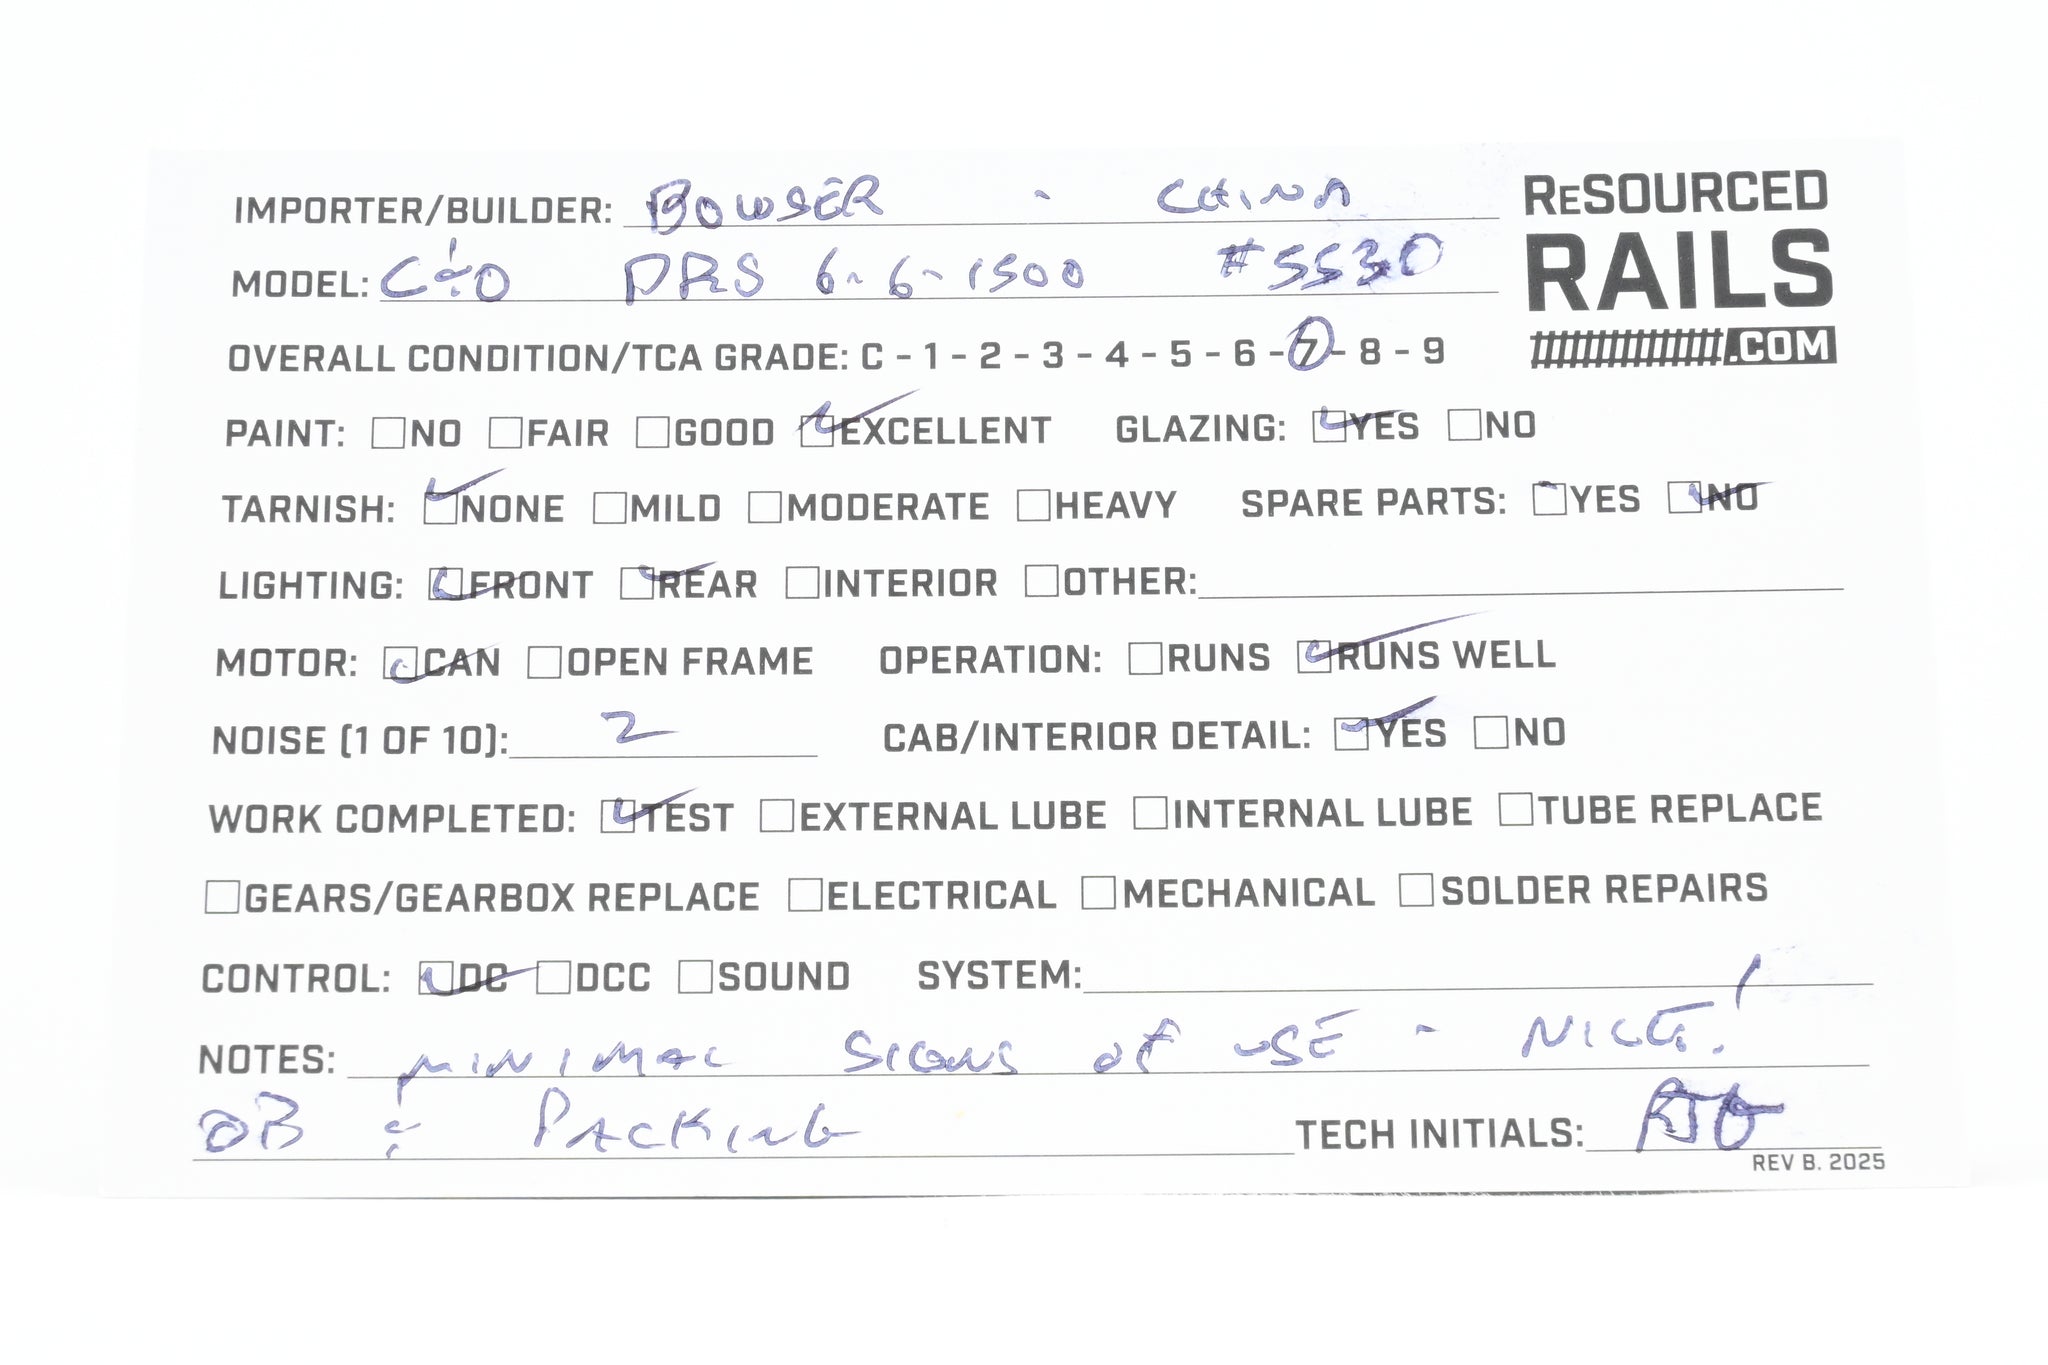 IMPORTER/BUILDER: BOWSER - CHINA
RESOURCED
RAILS
.COM
MODEL: C&O DRS 6-6-1500 #5530
OVERALL CONDITION/TCA GRADE: C - 1 - 2 - 3 - 4 - 5 - 6 - 7 - 8 - 9
PAINT: ☐NO ☐FAIR ☐GOOD ☑EXCELLENT GLAZING: ☑YES ☐NO
TARNISH: ☑NONE ☐MILD ☐MODERATE ☐HEAVY SPARE PARTS: ☐YES ☑NO
LIGHTING: ☑FRONT ☑REAR ☐INTERIOR ☐OTHER:
MOTOR: ☑CAN ☐OPEN FRAME OPERATION: ☐RUNS ☑RUNS WELL
NOISE (1 OF 10): 2 CAB/INTERIOR DETAIL: ☑YES ☐NO
WORK COMPLETED: ☑TEST ☐EXTERNAL LUBE ☐INTERNAL LUBE ☐TUBE REPLACE
☐GEARS/GEARBOX REPLACE ☐ELECTRICAL ☐MECHANICAL ☐SOLDER REPAIRS
CONTROL: ☑DC ☐DCC ☐SOUND SYSTEM:
NOTES: MINIMAL SIGNS OF USE - NICE!
OB & PACKING TECH INITIALS:
REV B. 2025